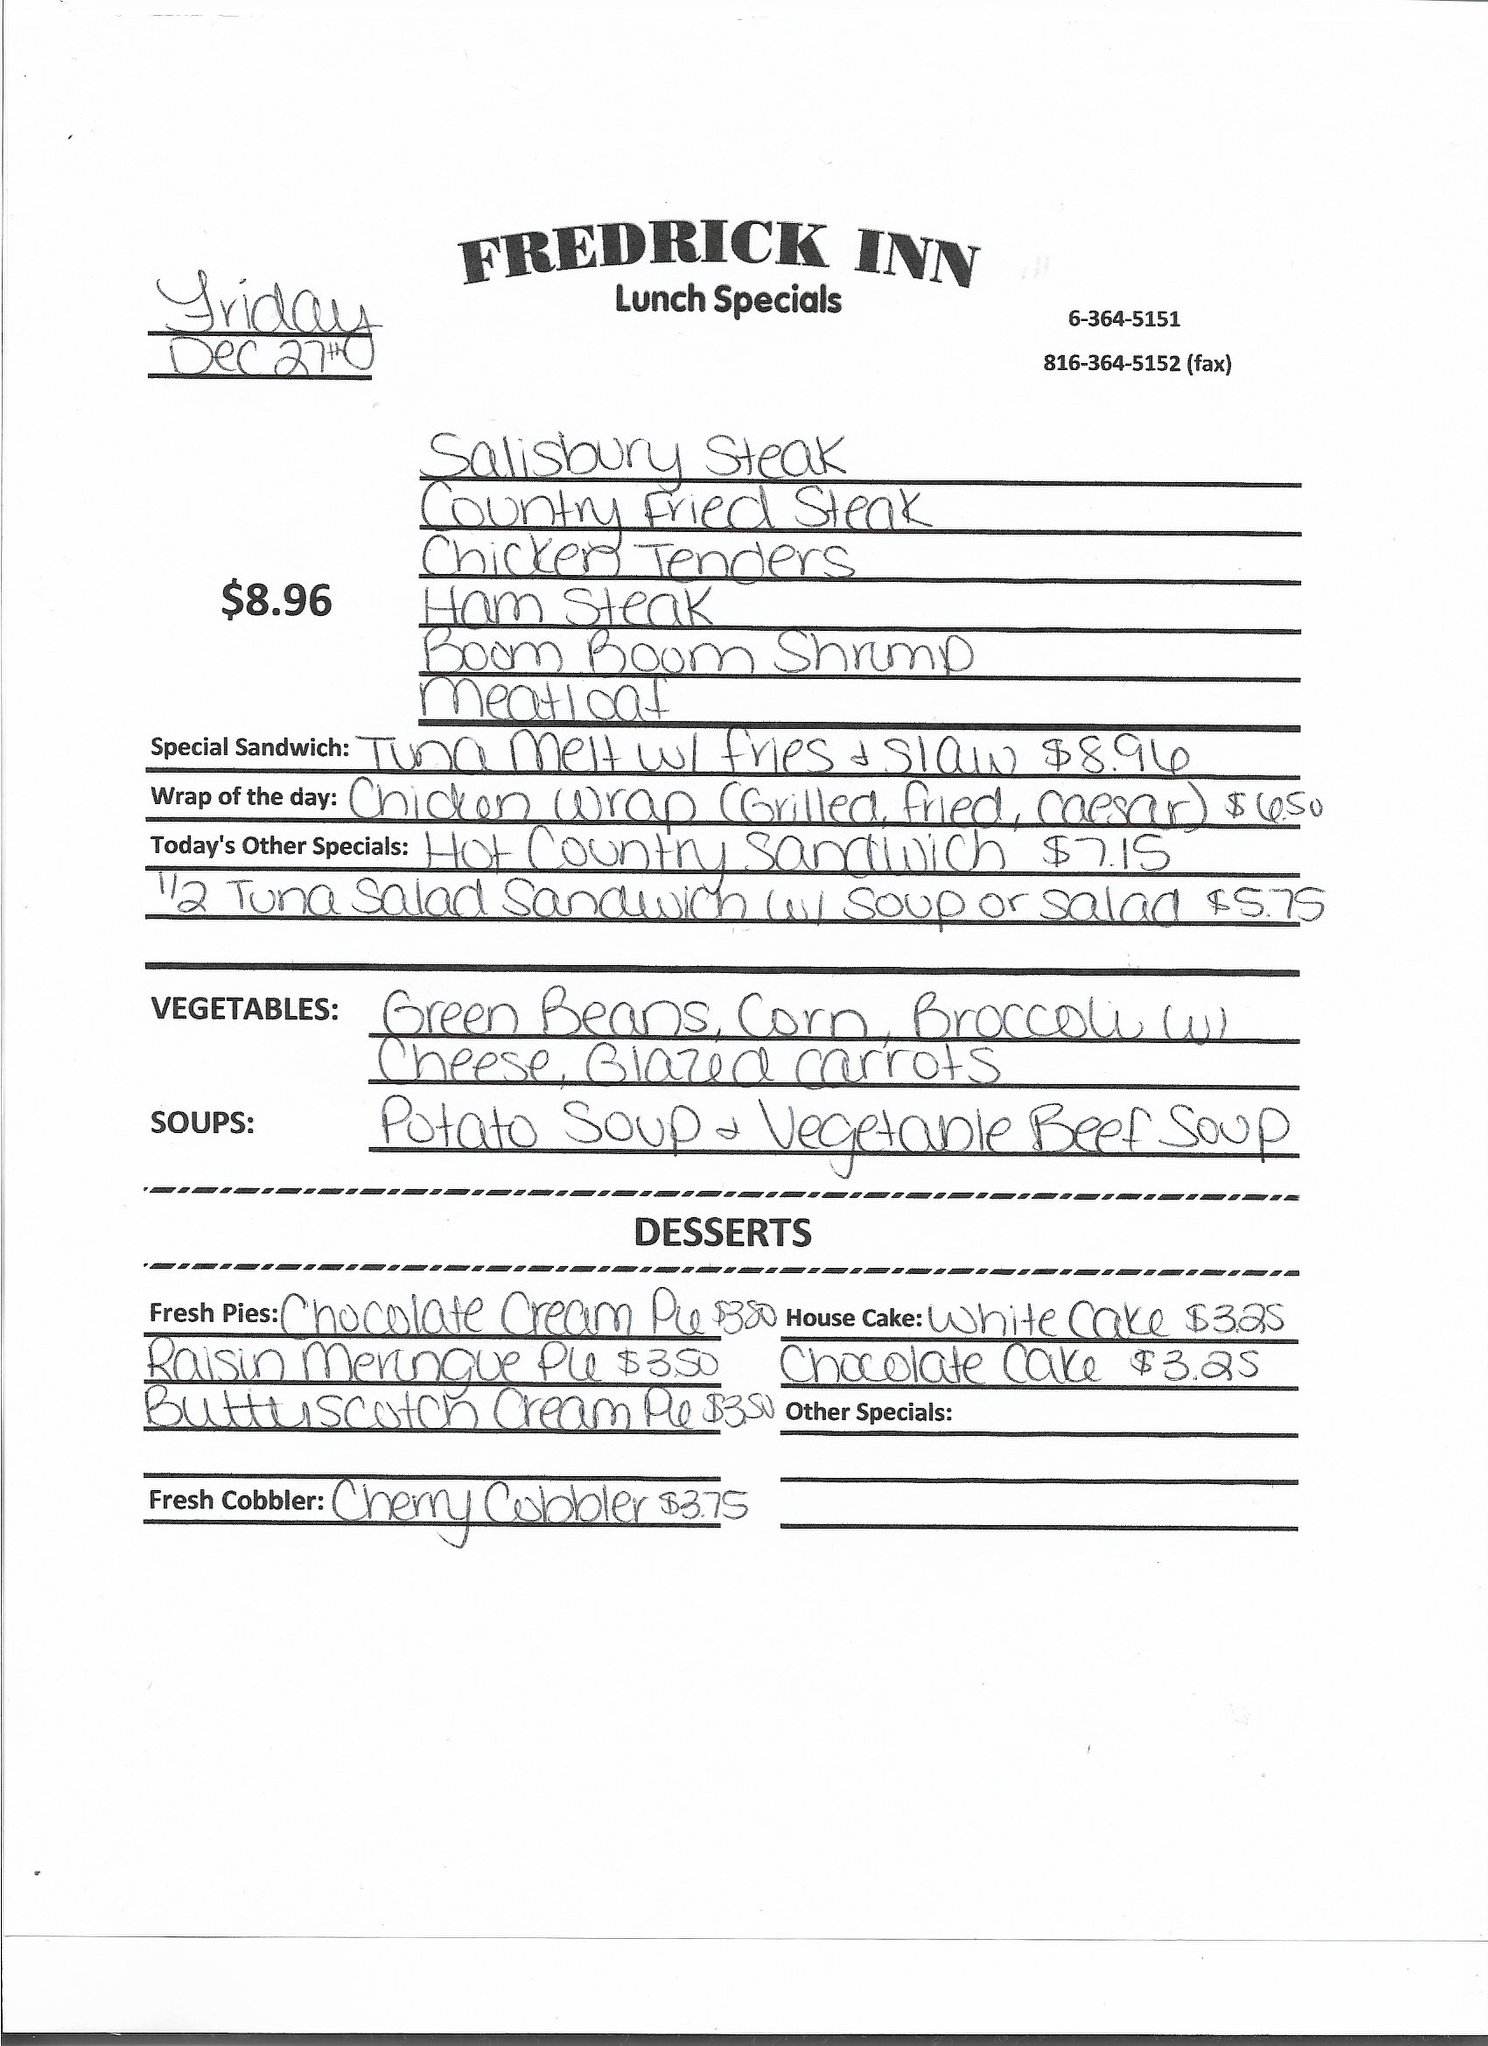 FREDRICK INN
Lunch Specials
Friday
Dec 27th
6-364-5151
816-364-5152 (fax)
$8.96
Salisbury Steak
Country Fried Steak
Chicken Tenders
Ham Steak
Boom Boom Shrimp
Meatloaf
Special Sandwich: Tuna Melt w/ fries & slaw $8.96
Wrap of the day: Chicken Wrap (Grilled, fried, caesar) $6.50
Today's Other Specials: Hot Country Sandwich $7.15
1/2 Tuna Salad Sandwich w/ soup or salad $5.75
VEGETABLES: Green Beans, Corn, Broccoli w/
Cheese, Glazed carrots
SOUPS: Potato Soup & Vegetable Beef Soup
DESSERTS
Fresh Pies: Chocolate Cream Pie $3.50
Raisin Meringue Pie $3.50
Butterscotch Cream Pie $3.50
Fresh Cobbler: Cherry Cobbler $3.75
House Cake: White Cake $3.25
Chocolate Cake $3.25
Other Specials: